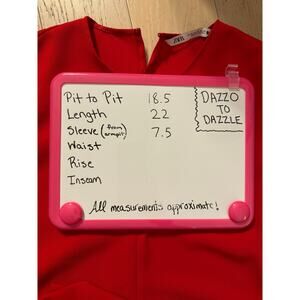 ZARA
Pit to Pit 18.5
Length 22
Sleeve (from armpit) 7.5
Waist
Rise
Inseam
DAZZO
TO
DAZZLE
All measurements approximate!